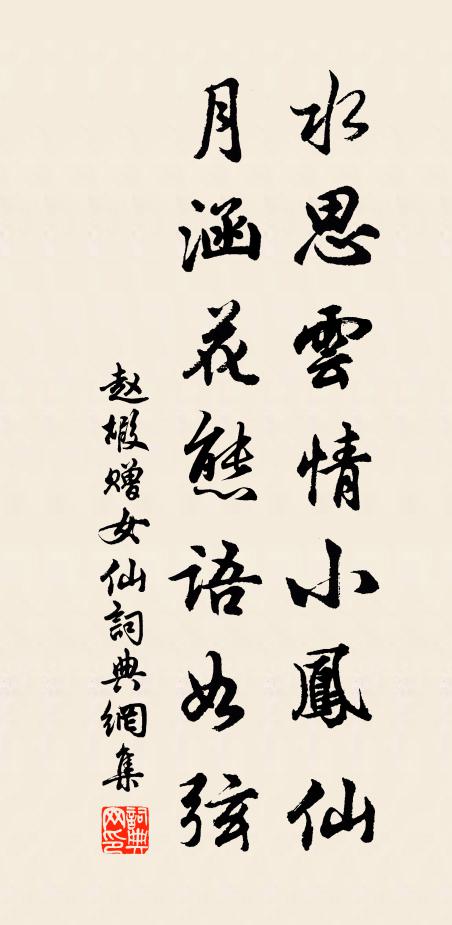 水思雲情小鳳仙
月涵花態語如弦
赵嘏赠女仙詞典網集
詞典网印